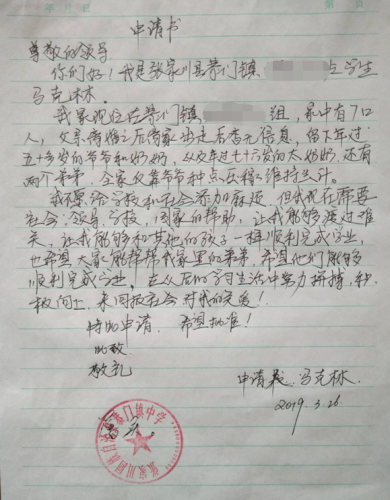 年 月 日 第 页
申请书
尊敬的领导
你们好！我是张家川县恭门镇 点学生
马克林。
我家现住在恭门镇 组，家中有7口
人，父亲 离婚之后 离家出走后杳无信息，留下年过
五十多岁的爷爷和奶奶，从 年过七十六岁的太奶奶，还有
两个弟弟，全家仅靠爷爷种点庄稼维持生计。
我不愿给学校和社会添加麻烦，但我现在需要
社会、领导、学校、国家的帮助，让我能够渡过难
关，让我能够和其他的孩子一样顺利完成学业，
也希望大家能帮帮我家里的弟弟，希望他们能够
顺利完成学业，在以后的学习生活中努力拼搏，积
极向上，来回报社会对我的关爱！
特此申请，希望批准！
此致
敬礼
申请 ：马克林
2019.3.26
张家川回族自治县恭门镇中学